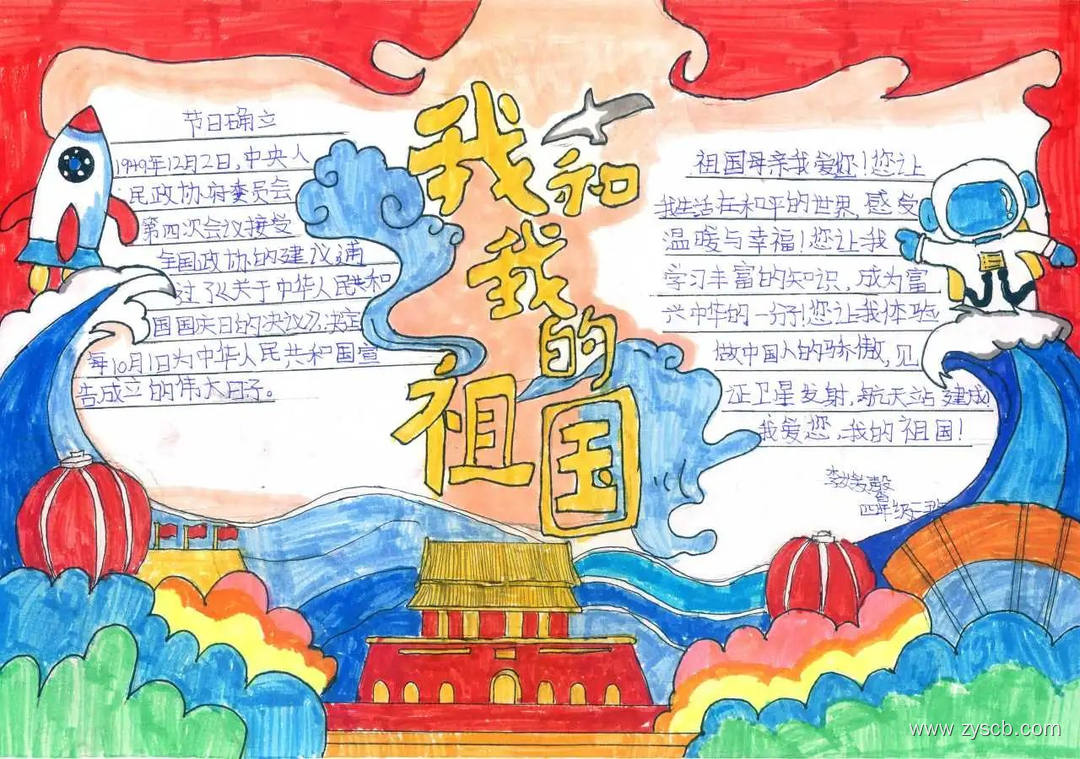 我和
我的
祖国
节日确立
1949年12月2日,中央人
民政协府委员会
第四次会议接受
全国政协的建议通
过了《关于中华人民共和
国国庆日的决议》,决定
每10月1日为中华人民共和国宣
告成立的伟大日子。
祖国母亲我爱你!您让
我生活在和平的世界,感受
温暖与幸福!您让我
学习丰富的知识,成为富
兴中华的一分子!您让我体验
做中国人的骄傲,见
证卫星发射,航天站建成
我爱您,我的祖国!
四年级三班
www.zyscb.com